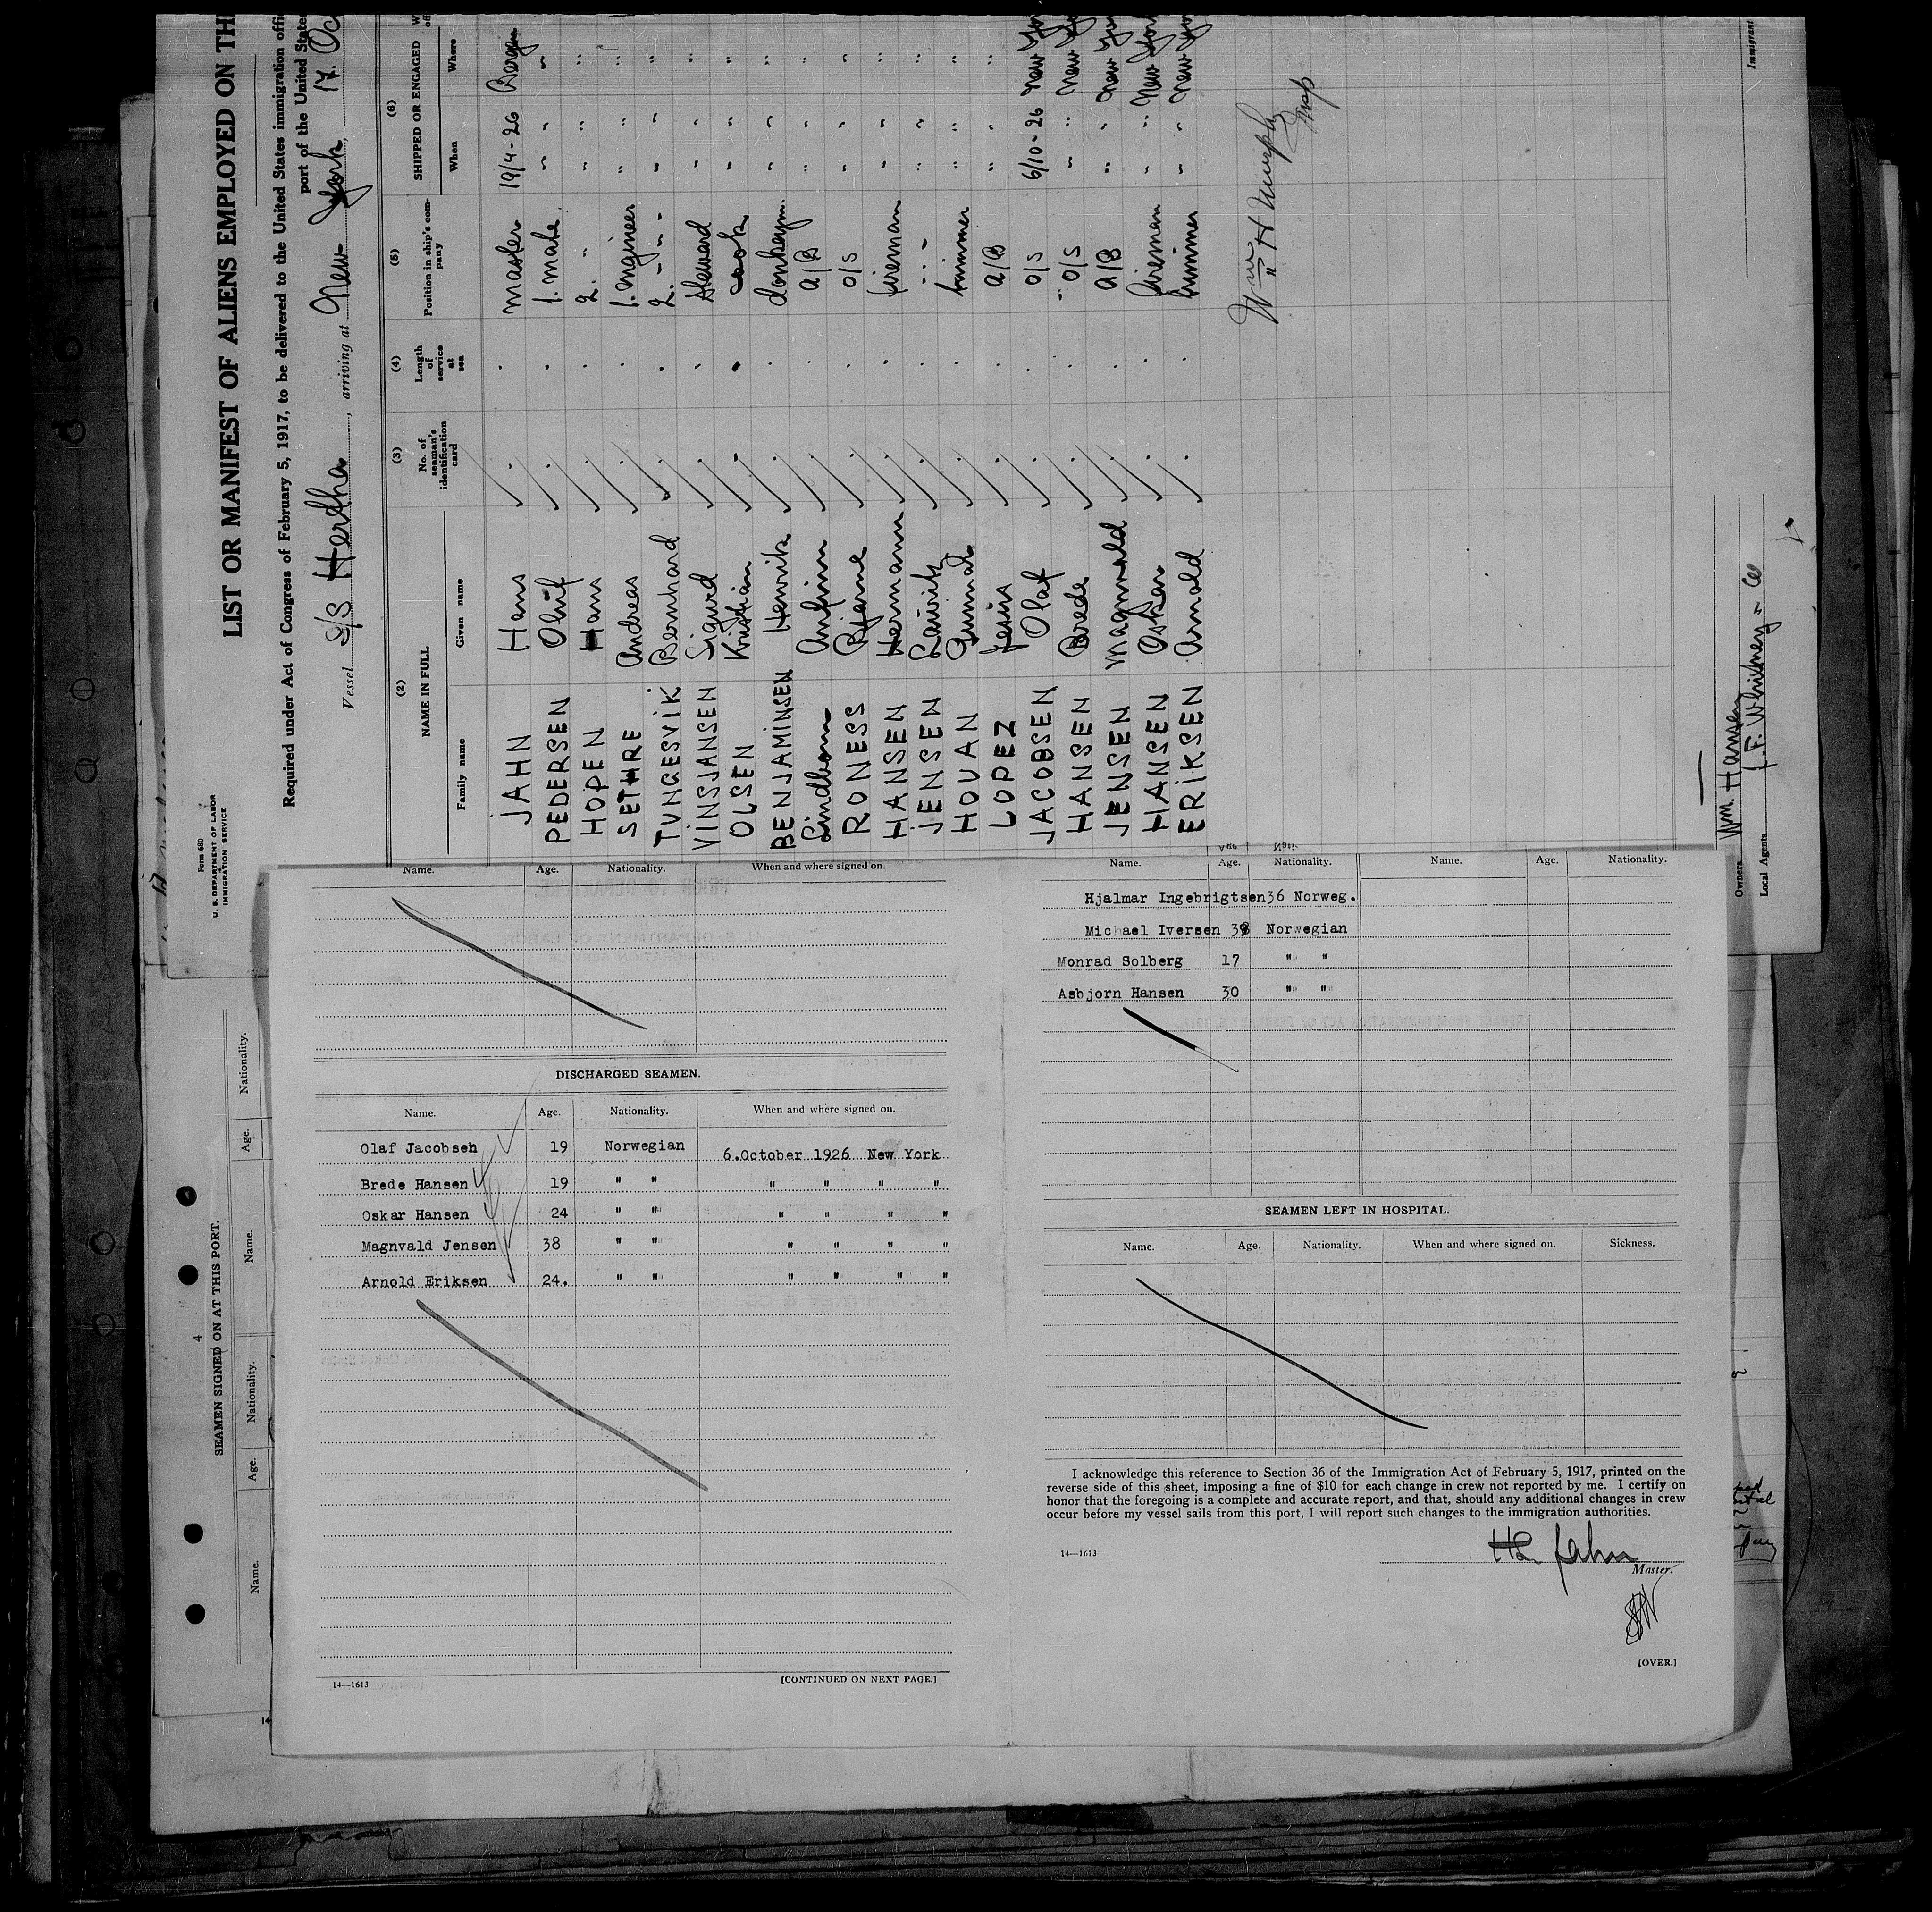 Form 680
U. S. DEPARTMENT OF LABOR
IMMIGRATION SERVICE
LIST OR MANIFEST OF ALIENS EMPLOYED ON TH
Required under Act of Congress of February 5, 1917, to be delivered to the United States immigration offi
port of the United State
Vessel S/S Hertha, arriving at New York, 17. Oc
(2) (3) (4) (5) (6)
NAME IN FULL No. of seaman's identification card Length of service at sea Position in ship's company SHIPPED OR ENGAGED
Family name Given name When Where
JAHN Hans master 19/4-26 Bergen
PEDERSEN Oluf 1. mate " " "
HOPEN Hans 2. " " " "
SETHRE Andreas 1. engineer " " "
TUNGESVIK Bernhard 2. -"- " " "
VINSJANSEN Sigurd Steward " " "
OLSEN Kristian cook " " "
BENJAMINSEN Henrik donkeym. " " "
Lindbom Anfinn A/B " " "
RONESS Bjarne O/S " " "
HANSEN Hermann fireman " " "
JENSEN Lauritz " " " "
HOVAN Gunnar trimmer " " "
LOPEZ A/B " " "
JACOBSEN Olaf O/S 6/10-26 New Yor
HANSEN Brede O/S " " New Yo
JENSEN Magnvald A/B " " New Yor
HANSEN Oskar fireman " " New York
ERIKSEN Arnold trimmer " " New Yor
Wm H Murphy
Insp
Immigrant
Owners Wm. Hansen
Local Agents J. F. Whitney & Co
4
SEAMEN SIGNED ON AT THIS PORT.
Name. Age. Nationality. Name. Age. Nationality.
14
Name. Age. Nationality. When and where signed on.
DISCHARGED SEAMEN.
Name. Age. Nationality. When and where signed on.
Olaf Jacobsen 19 Norwegian 6.October 1926 New York
Brede Hansen 19 " " " " " "
Oskar Hansen 24 " " " " " "
Magnvald Jensen 38 " " " " " "
Arnold Eriksen 24. " " " " " "
14—1613 [CONTINUED ON NEXT PAGE.]
Name. Age. Nationality. Name. Age. Nationality.
Hjalmar Ingebrigtsen 36 Norweg.
Michael Iversen 38 Norwegian
Monrad Solberg 17 " "
Asbjorn Hansen 30 " "
SEAMEN LEFT IN HOSPITAL.
Name. Age. Nationality. When and where signed on. Sickness.
I acknowledge this reference to Section 36 of the Immigration Act of February 5, 1917, printed on the
reverse side of this sheet, imposing a fine of $10 for each change in crew not reported by me. I certify on
honor that the foregoing is a complete and accurate report, and that, should any additional changes in crew
occur before my vessel sails from this port, I will report such changes to the immigration authorities.
14—1613
Ha Jahn
Master.
[OVER.]